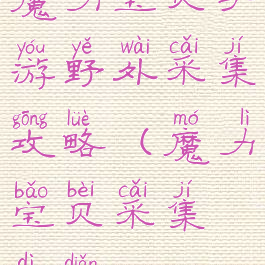 魔
yóu yě wài cǎi jí
游野外采集
gōng lüè mó lì
攻略（魔力
bǎo bèi cǎi jí
宝贝采集
dì diǎn